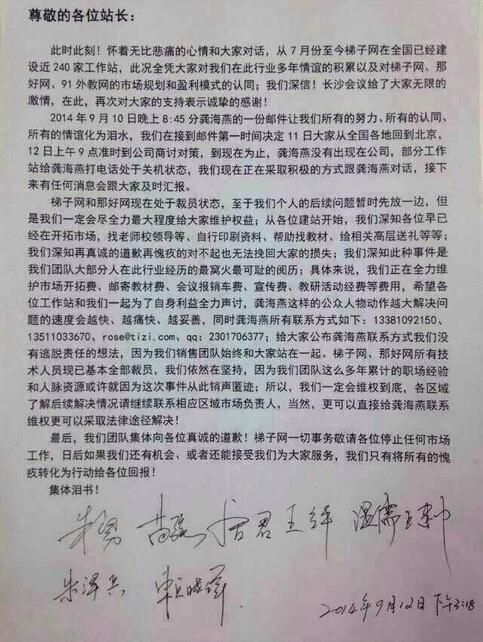 尊敬的各位站长：
此时此刻！怀着无比悲痛的心情和大家对话，从 7 月份至今梯子网在全国已经建
设近 240 家工作站，此况全凭大家对我们在此行业多年情谊的积累以及对梯子网、那
好网、91 外教网的市场规划和盈利模式的认同；我们深信！长沙会议给了大家无限的
激情，在此，再次对大家的支持表示诚挚的感谢！
2014 年 9 月 10 日晚 8:45 分龚海燕的一份邮件让我们所有的努力、所有的认同、
所有的情谊化为泪水，我们在接到邮件第一时间决定 11 日大家从全国各地回到北京，
12 日上午 9 点准时到公司商讨对策，到现在为止，龚海燕没有出现在公司，部分工作
站给龚海燕打电话处于关机状态，我们现在正在采取积极的方式跟龚海燕对话，接下
来有任何消息会跟大家及时汇报。
梯子网和那好网现在处于裁员状态，至于我们个人的后续问题暂时先放一边，但
是我们一定会尽全力最大程度给大家维护权益；从各位建站开始，我们深知各位早已
经在开拓市场，找老师校领导等、自行印刷资料、帮助找教材、给相关高层送礼等等；
我们深知再真诚的道歉再愧疚的对不起也无法挽回大家的损失；我们深知此种事件是
我们团队大部分人在此行业经历的最窝火最可耻的阅历；具体来说，我们正在全力维
护市场开拓费、邮寄教材费、会议报销车费、宣传费、教研活动经费等费用，希望各
位工作站和我们一起为了自身利益全力声讨，龚海燕这样的公众人物动作越大解决问
题的速度会越快、越痛快、越妥善，同时龚海燕所有联系方式如下：13381092150、
13511033670、rose@tizi.com、qq：2301706377；给大家公布龚海燕联系方式我们没
有逃脱责任的想法，因为我们销售团队始终和大家站在一起。梯子网、那好网所有技
术人员现已基本全部裁员，我们依然在坚持，因为我们团队这么多年累计的职场经验
和人脉资源或许就因为这次事件从此销声匿迹；所以，我们一定会维权到底，各区域
了解后续解决情况请继续联系相应区域市场负责人，当然，更可以直接给龚海燕联系
维权更可以采取法律途径解决！
最后，我们团队集体向各位真诚的道歉！梯子网一切事务敬请各位停止任何市场
工作，日后如果我们还有机会、或者还能接受我们为大家服务，我们只有将所有的愧
疚转化为行动给各位回报！
集体泪书！
2014年9月12日 下午3:18